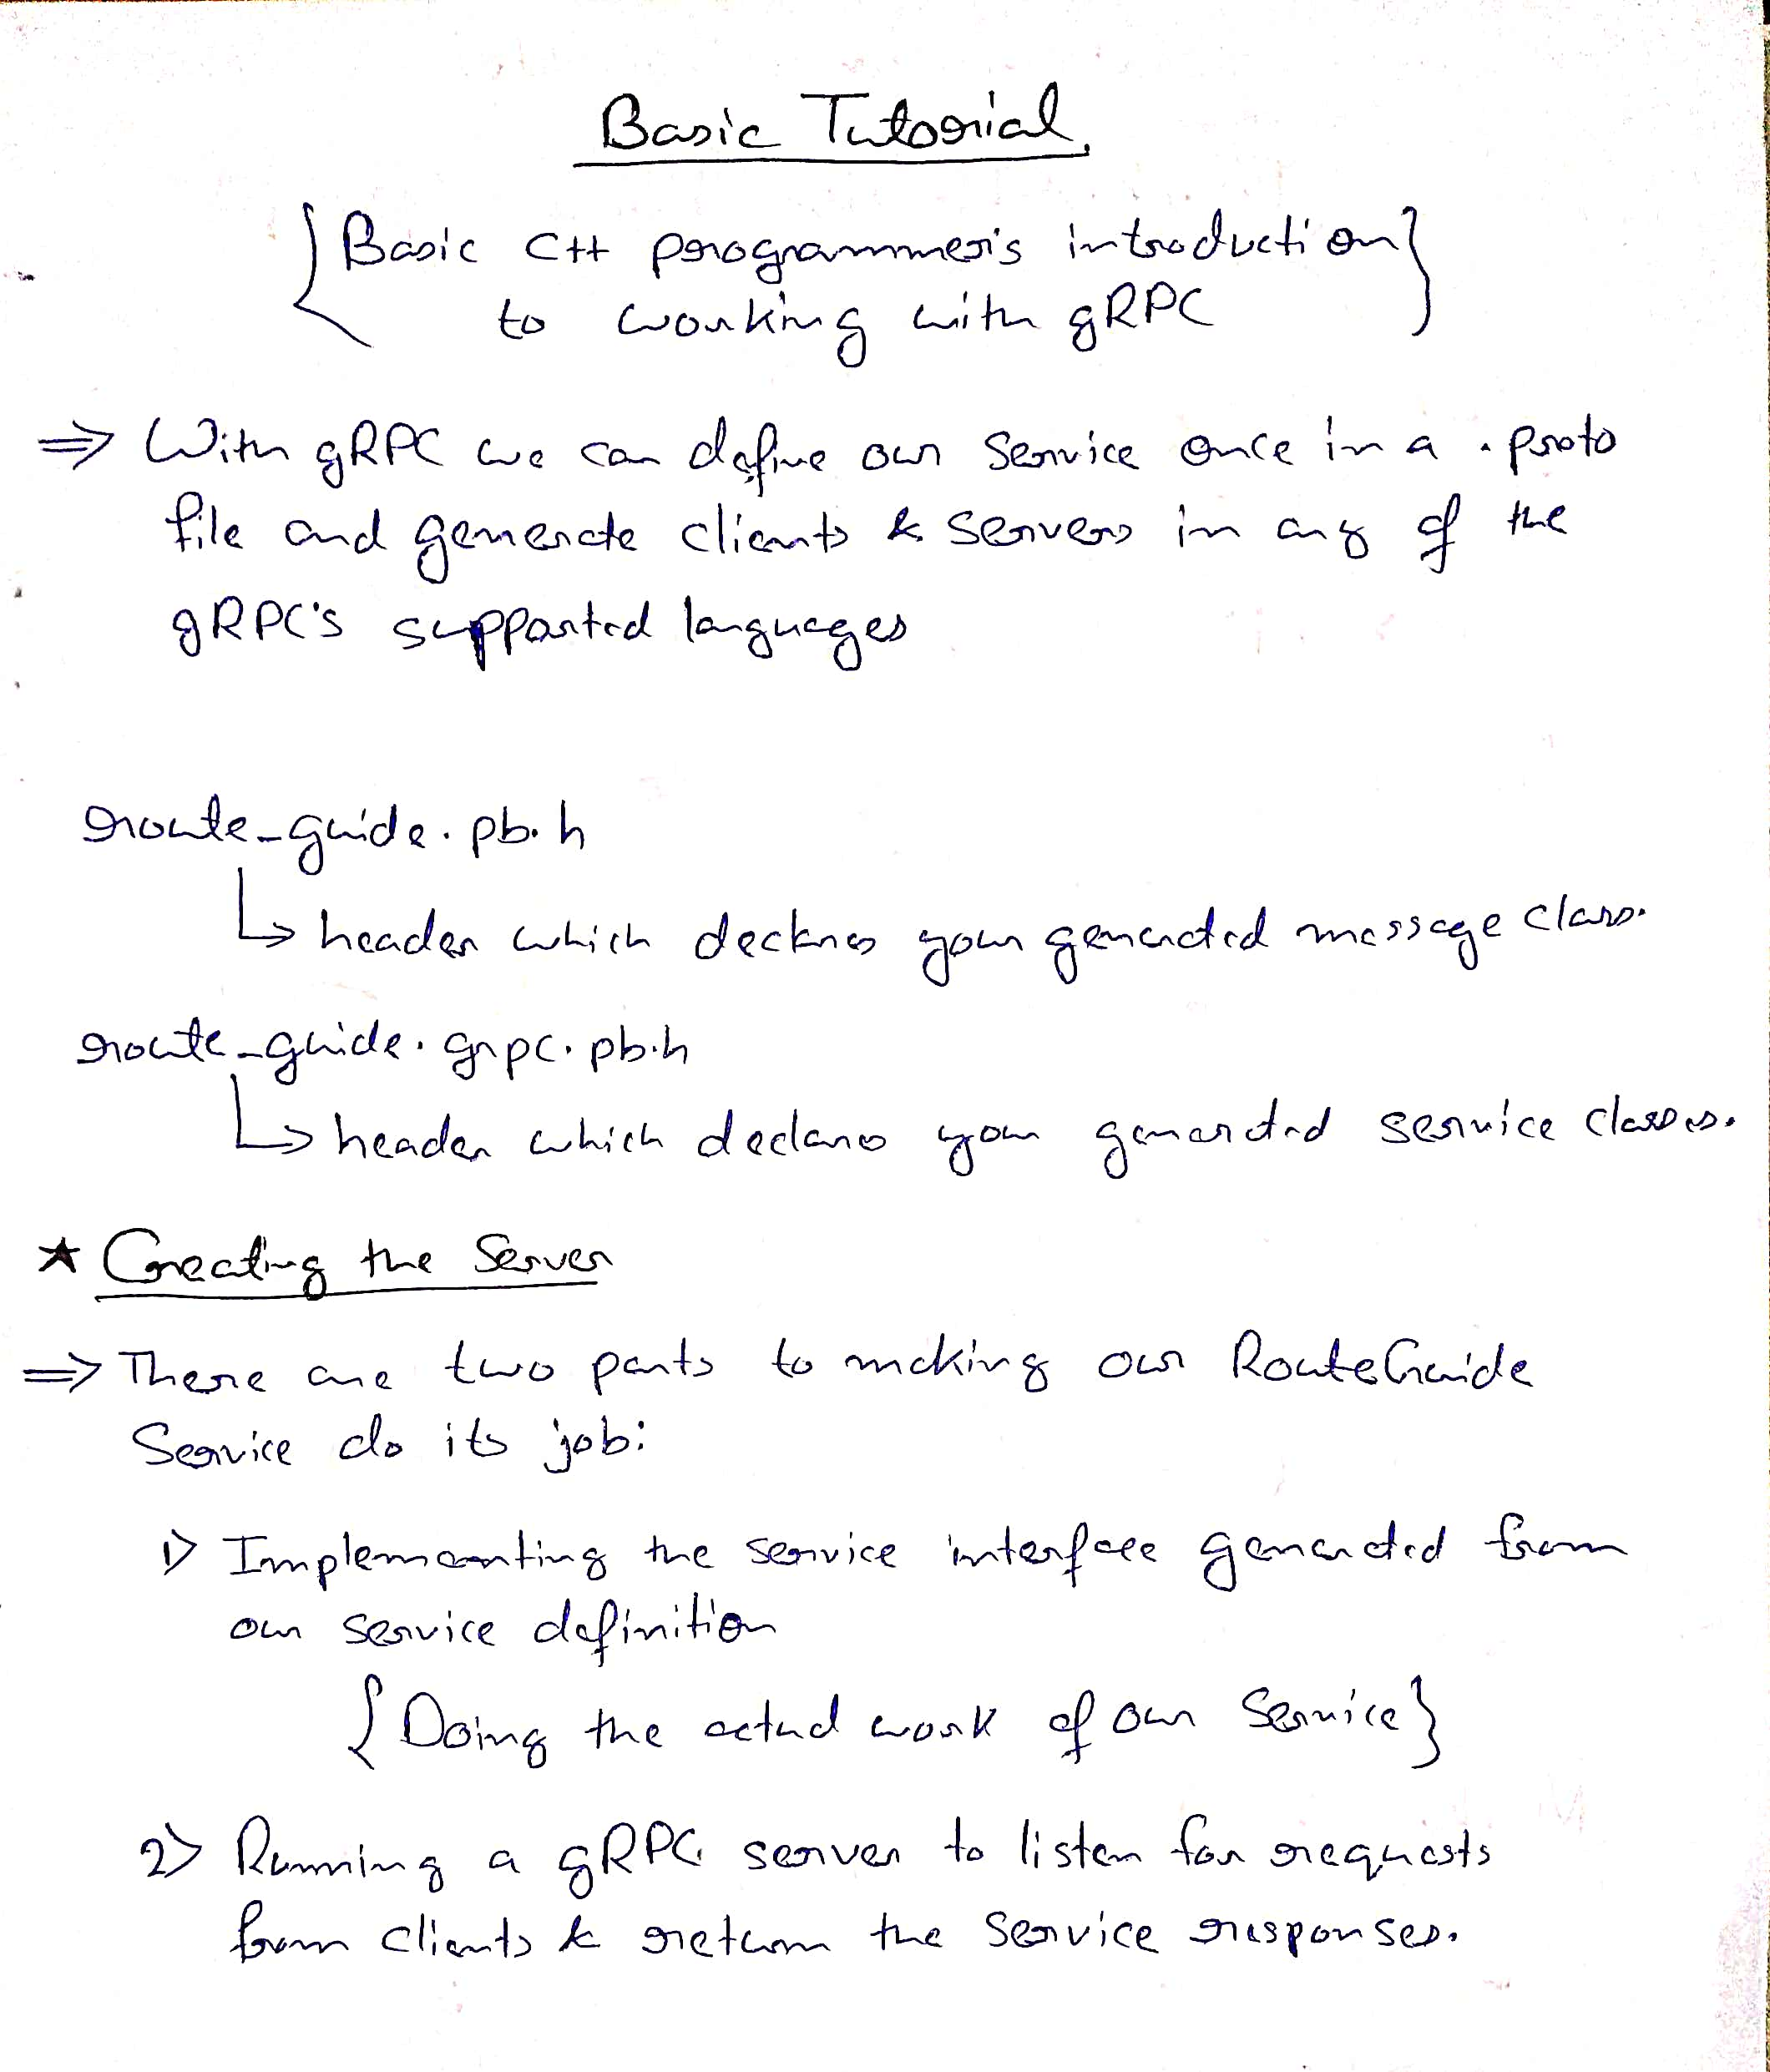 Basic Tutorial
{Basic C++ programmer's introduction}
to working with gRPC
⇒ With gRPC we can define our service once in a .proto
file and generate clients & servers in any of the
gRPC's supported languages
route_guide.pb.h
↳ header which declares your generated message class.
route_guide.grpc.pb.h
↳ header which declares your generated service classes.
★ Creating the Server
⇒ There are two parts to making our RouteGuide
Service do its job:
1> Implementing the service interface generated from
our service definition
{Doing the actual work of our Service}
2> Running a gRPC server to listen for requests
from clients & return the service responses.